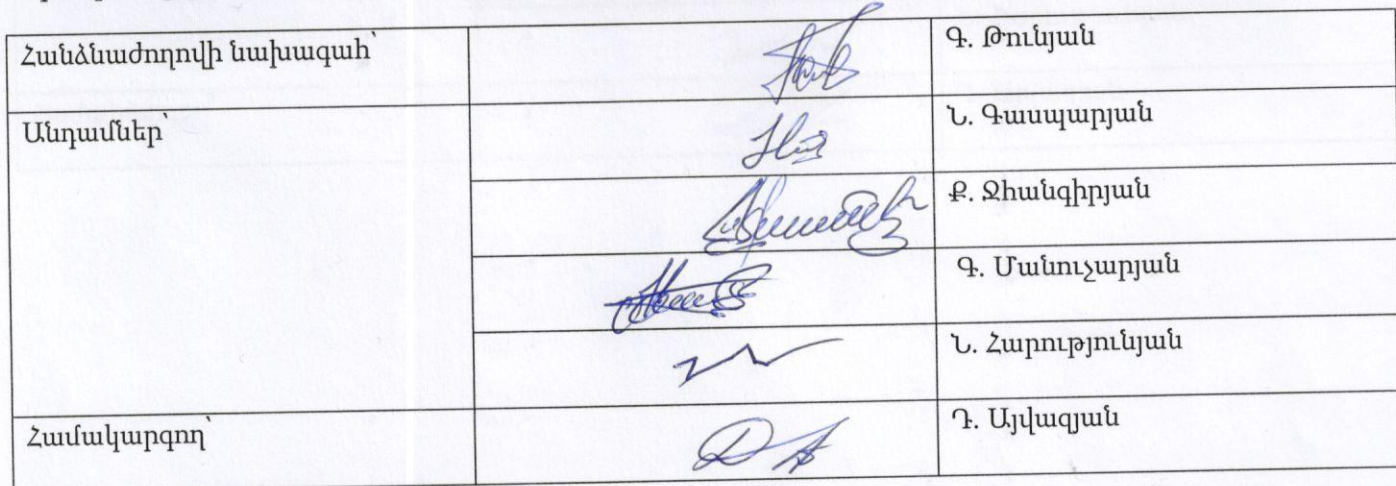 Հանձնաժողովի նախագահ՝ Գ. Թունյան
Անդամներ՝ Ն. Գասպարյան
Ք. Ջհանգիրյան
Գ. Մանուչարյան
Ն. Հարությունյան
Համակարգող՝ Դ. Այվազյան